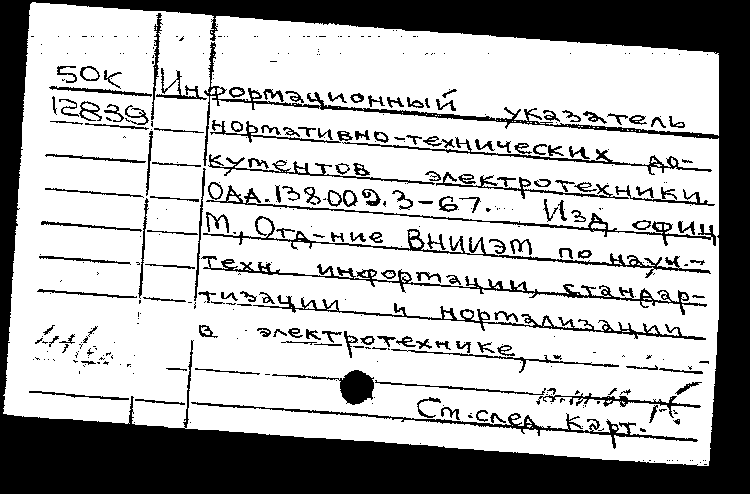 50К Информационный указатель
12839 нормативно-технических до-
кументов электротехники.
ОАА.138.009.3-67. Изд. офиц
М., Отд-ние ВНИИЭМ по науч.-
техн. информации, стандар-
тизации и нормализации
в электротехнике,
См. след. карт.